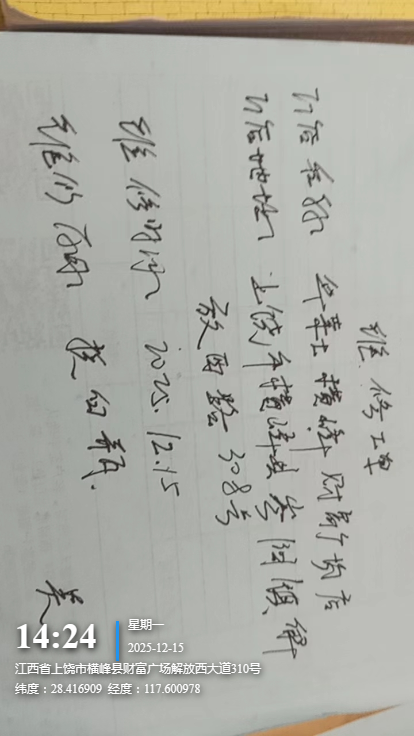 维修工单
门店名称 华莱士横峰财富广场店
门店地址 上饶市横峰县岑阳镇解
放西路308号
维修时间 2025.12.15
维修
14:24
星期一
2025-12-15
江西省上饶市横峰县财富广场解放西大道310号
纬度：28.416909 经度：117.600978